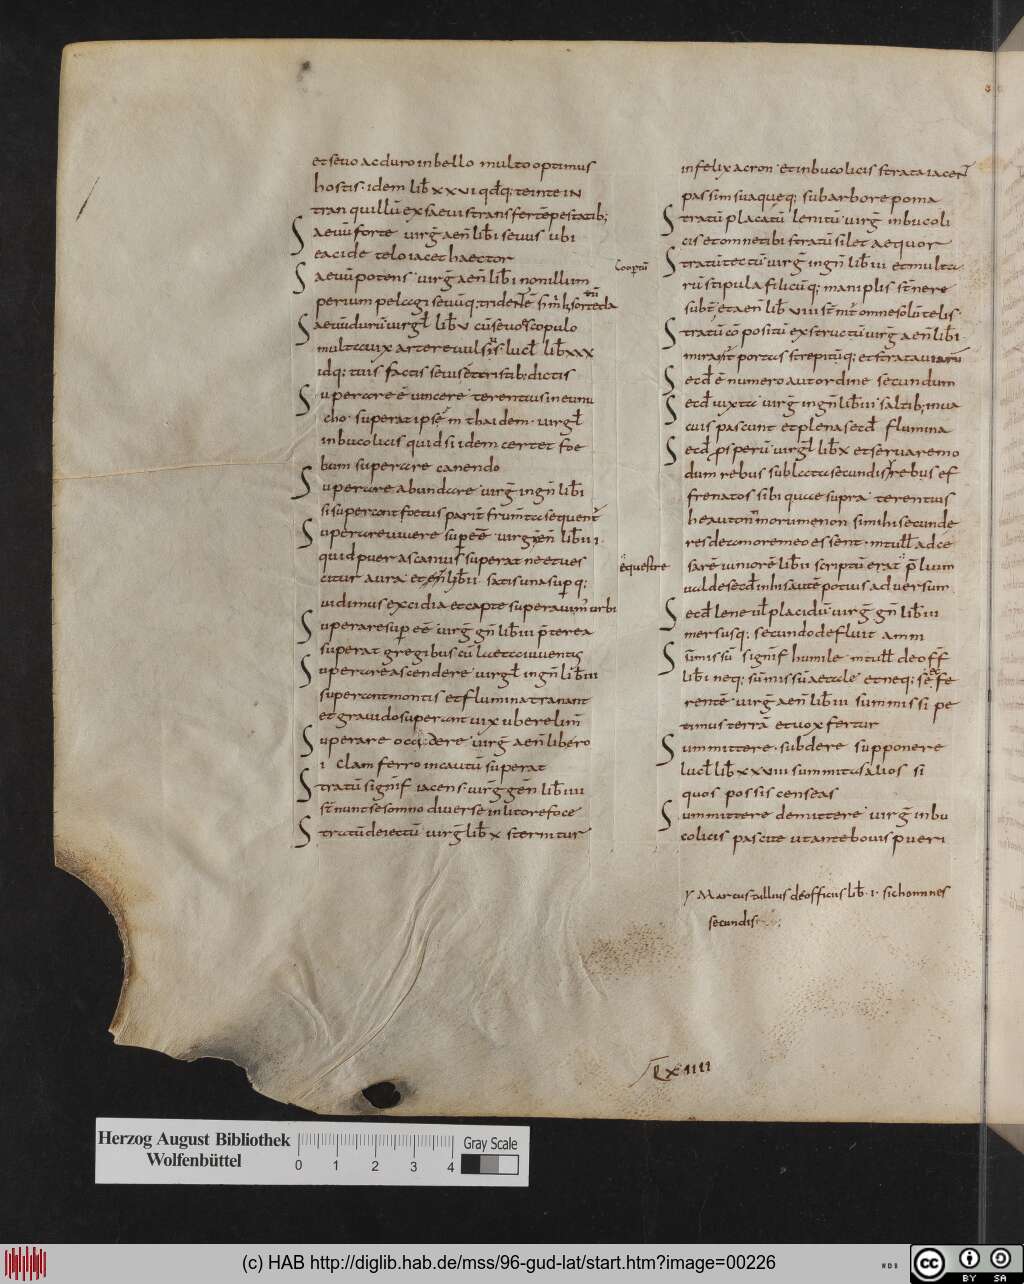 et sęuo ac duro in bello multo optimus
hostis · idem lib̄ xxvi qd̄q; te inte in
tranquillū ex saeuis transferre tēpestatib;
Saeuū forte virḡ aen̄ lib̄ i sęuus ubi
eacide telo iacet haector
Saeuū potens virḡ aen̄ lib̄ i non illum
perium pelagi sęuūq; tridentē
Saeuū durū virgł lib̄ v cū sęuo scopulo
multa vix arte reuulsus lucł lib̄ xxx
idq; tuis factis sęuis et tristib; dictis
Superare ē uincere terentius in eunu
cho · superat ipsē in thaidem · virgł
in bucolicis quid si idem certet foe
bum superare canendo
Superare abundare virḡ in gn̄ lib̄ i
si superant foetus parit̄ frum̄ta sequent̄
Superare uiuere sup eē virḡ aen̄ lib̄ iii
quid puer ascanius superat ne et ues
citur aura · et lib̄ ii satis una sup q;
uidimus excidia et captę superauim̄ urbi
Superare sup eē virḡ gn̄ lib̄ iii p̄terea
superat gregibus cū laeta iuuentus
Superare ascendere virgł in gn̄ lib̄ iii
superant montis et flumina tranant
et grauido superant vix ubere lim̄
Superare occidere virḡ aen̄ libero
i clam ferro incautū superat
Stratū signif̄ iacens virḡ gen̄ lib̄ iiii
st̄nunt se somno diuersę in litore focę
Stratū deiectū virḡ lib̄ x sternitur
infelix acron · et in bucolicis strata iacent̄
passim sua quęq; sub arbore poma
Stratū placatū lenitū virḡ in bucoli
cis et omne tibi stratū silet aequor
Coopertū
Stratū tectū virḡ in gn̄ lib̄ iii et multa
rū stipula filicūq; maniplis st̄nere
subt̄ et aen̄ lib̄ viii st̄nit̄ omne solū telis
Stratū cōpositū exstructū virḡ aen̄ lib̄ i
mirat̄ portas strepitūq; et strata uiarū
Secd̄ ē numero aut ordine secundum
Secd̄ iuxta virḡ in gn̄ lib̄ iii saltib; in ua
cuis pascunt et plena secd̄ flumina
Secd̄ psperū virgł lib̄ x et seruaremo
dum rebus sublata secundis rebus ef
frenatos sibi quae supra terentius
heautonmorumenon si mihi secunde
res de amore meo essent · m tułł ad ce
equestre
sarē iuniorē lib̄ ii scriptū erat p̄lium
ualde secd̄ in his autē potius aduersum
Secd̄ lene uł placidū virḡ gn̄ lib̄ iii
mersusq; secundo defluit amni
Sūmissū signif̄ humile m tułł de off̄
lib̄ i neq; sūmissū aetale et neq; se effe
rentē virḡ aen̄ lib̄ iii summissi pe
timus terrā et uox fertur
Summittere · subdere supponere
lucł lib̄ xxviii summittas alios si
quos possis censeas
Summittere demittere virḡ in bu
colicis pascite ut ante bouis pueri
Marcus tullius de officiis lib̄ · i · sic homines
secundis
lxiiii
Herzog August Bibliothek
Wolfenbüttel
0 1 2 3 4
Gray Scale
(c) HAB http://diglib.hab.de/mss/96-gud-lat/start.htm?image=00226
WDB
cc BY SA